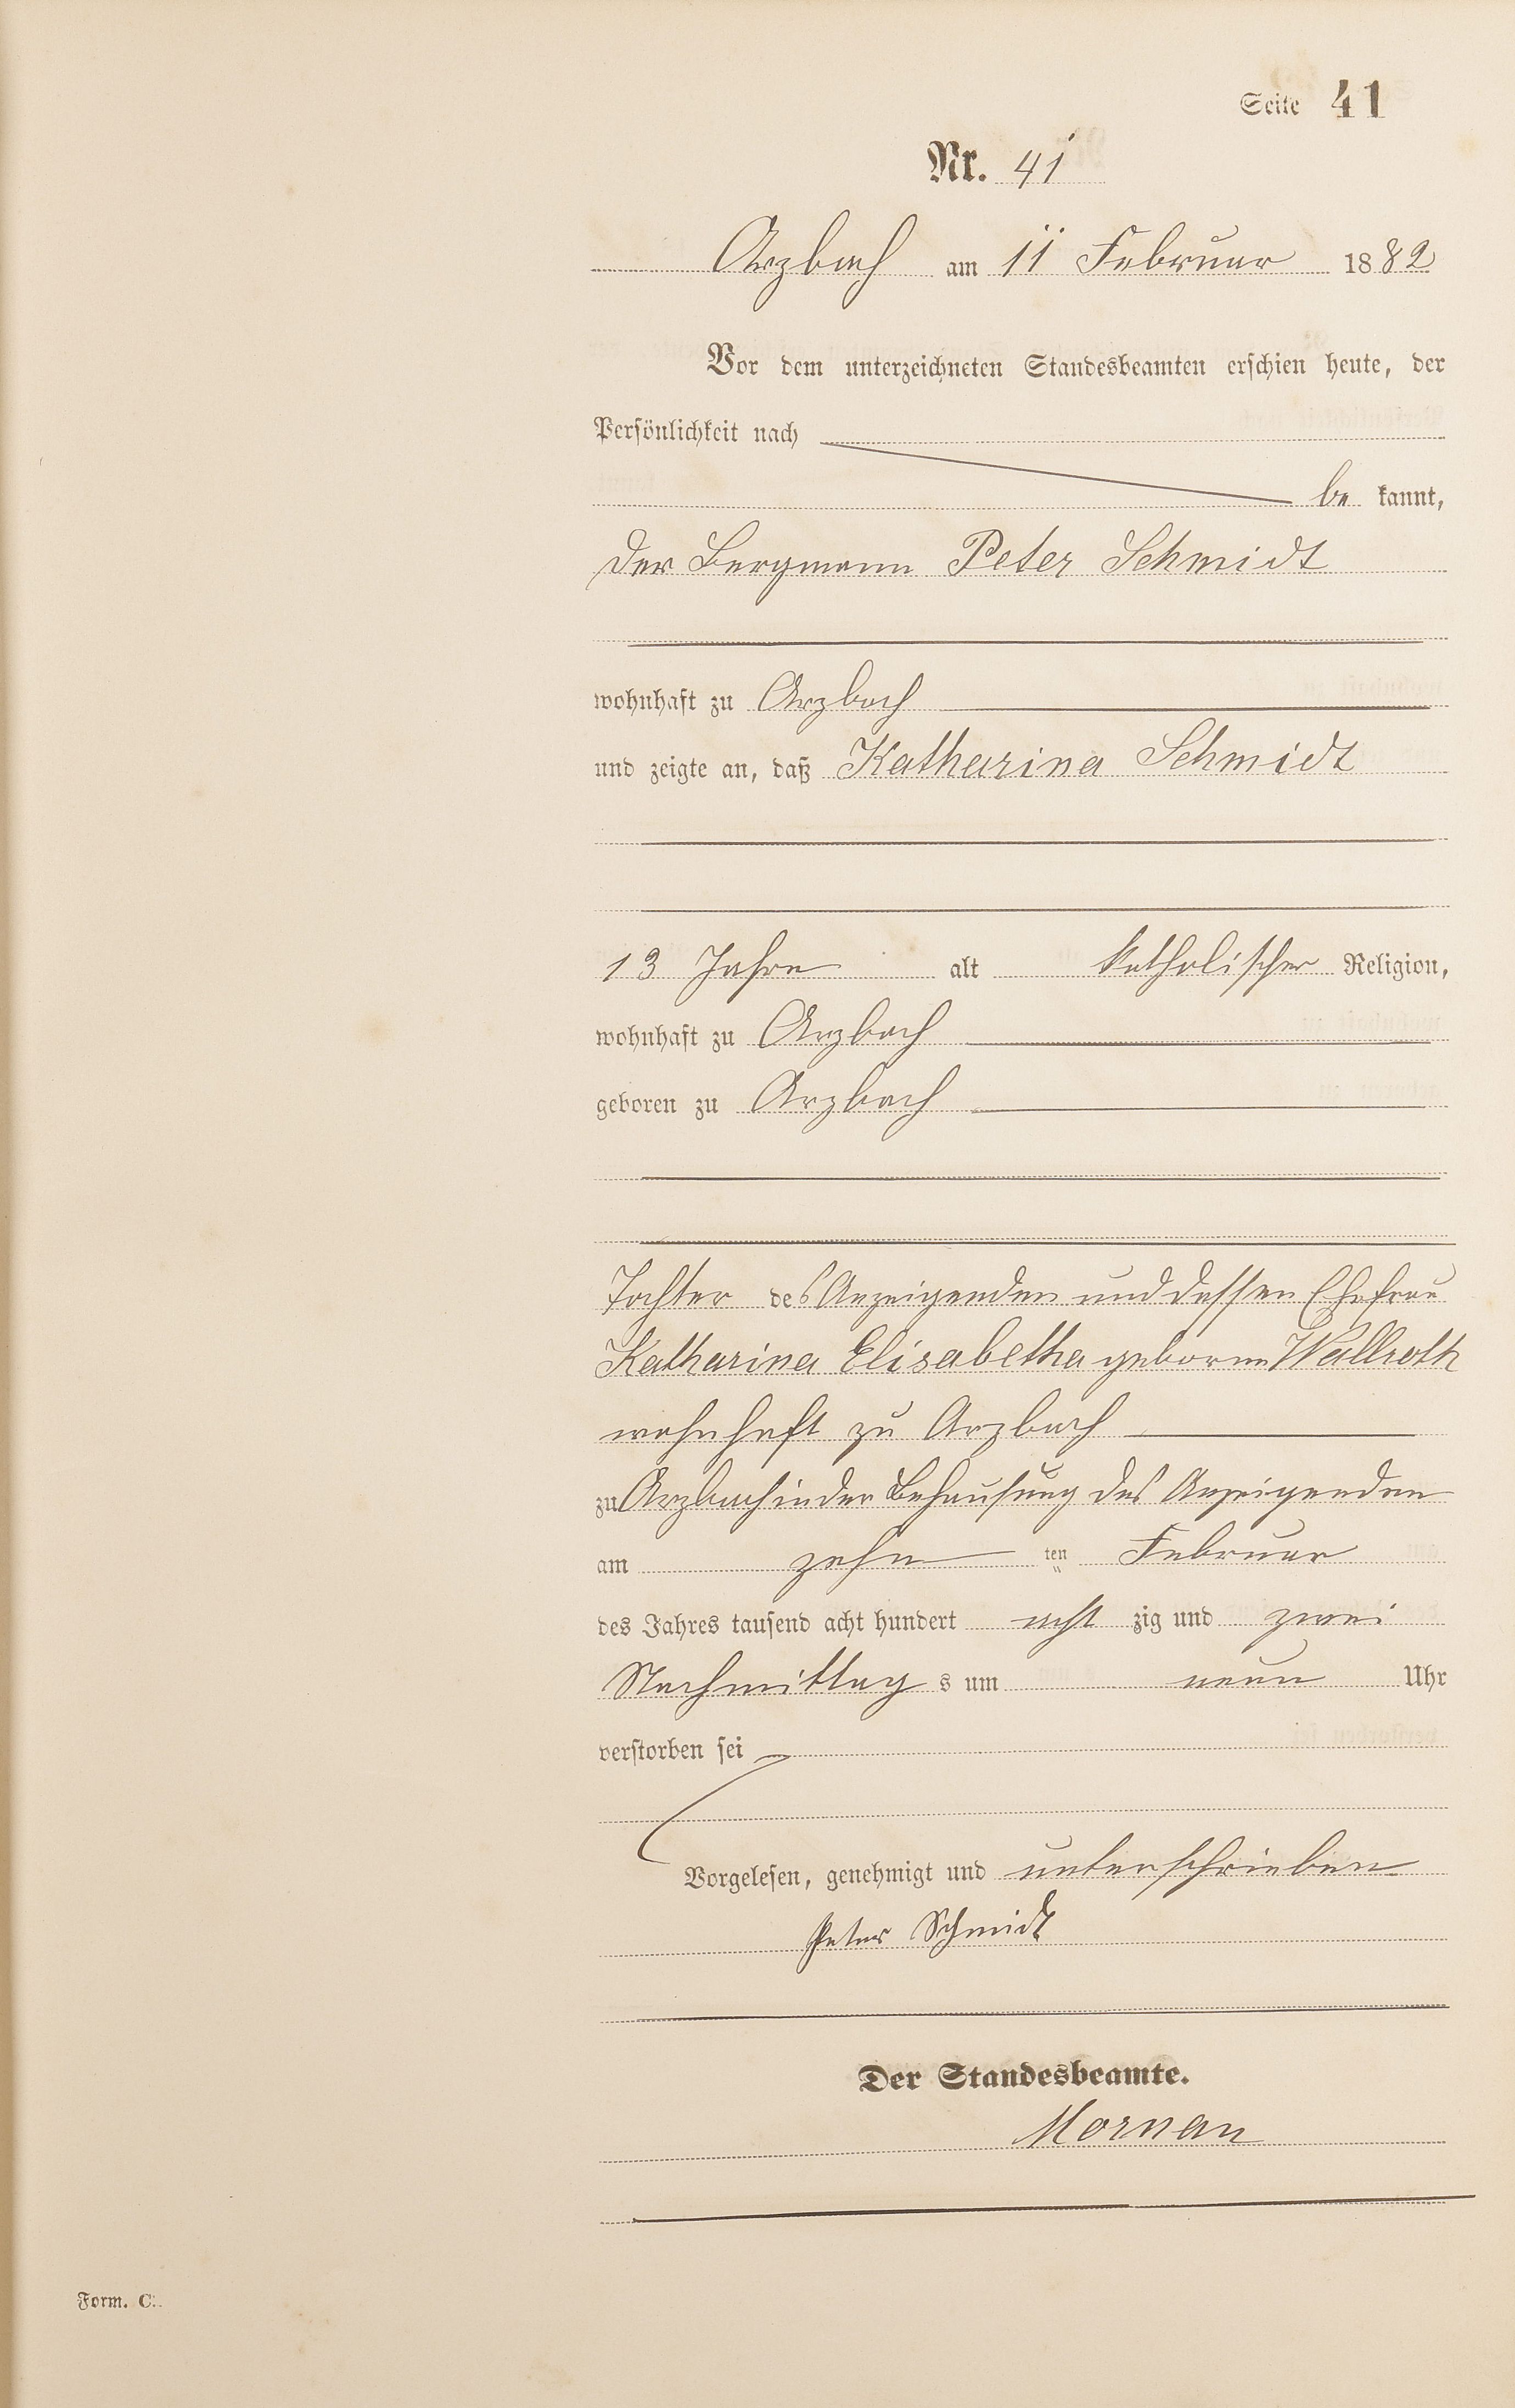 Seite 41
Nr. 41
Arzbach am 11 Februar 1882
Vor dem unterzeichneten Standesbeamten erschien heute, der
Persönlichkeit nach
be kannt,
der Bergmann Peter Schmidt
wohnhaft zu Arzbach
und zeigte an, daß Katharina Schmidt
13 Jahre alt katholischer Religion,
wohnhaft zu Arzbach
geboren zu Arzbach
Tochter des Anzeigenden und dessen Ehefrau
Katharina Elisabetha geborne Wallroth
wohnhaft zu Arzbach
zu Arzbach in der Behausung des Anzeigenden
am zehn ten Februar
des Jahres tausend acht hundert acht zig und zwei
Nachmittag s um neun Uhr
verstorben sei
Vorgelesen, genehmigt und unterschrieben
Peter Schmidt
Der Standesbeamte.
Mornau
Form. C.